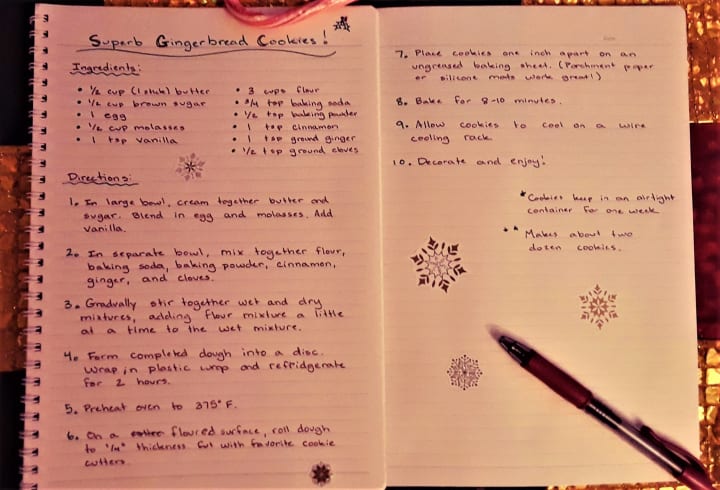 Superb Gingerbread Cookies!
Ingredients:
• 1/2 cup (1 stick) butter
• 1/2 cup brown sugar
• 1 egg
• 1/2 cup molasses
• 1 tsp vanilla
• 3 cups flour
• 3/4 tsp baking soda
• 1/2 tsp baking powder
• 1 tsp cinnamon
• 1 tsp ground ginger
• 1/2 tsp ground cloves
Directions:
1. In large bowl, cream together butter and
sugar. Blend in egg and molasses. Add
vanilla.
2. In separate bowl, mix together flour,
baking soda, baking powder, cinnamon,
ginger, and cloves.
3. Gradually stir together wet and dry
mixtures, adding flour mixture a little
at a time to the wet mixture.
4. Form completed dough into a disc.
Wrap in plastic wrap and refridgerate
for 2 hours.
5. Preheat oven to 375° F.
6. On a floured surface, roll dough
to 1/4" thickness. Cut with favorite cookie
cutters.
7. Place cookies one inch apart on an
ungreased baking sheet. (Parchment paper
or silicone mats work great!)
8. Bake for 8-10 minutes.
9. Allow cookies to cool on a wire
cooling rack.
10. Decorate and enjoy!
* Cookies keep in an airtight
container for one week.
** Makes about two
dozen cookies.